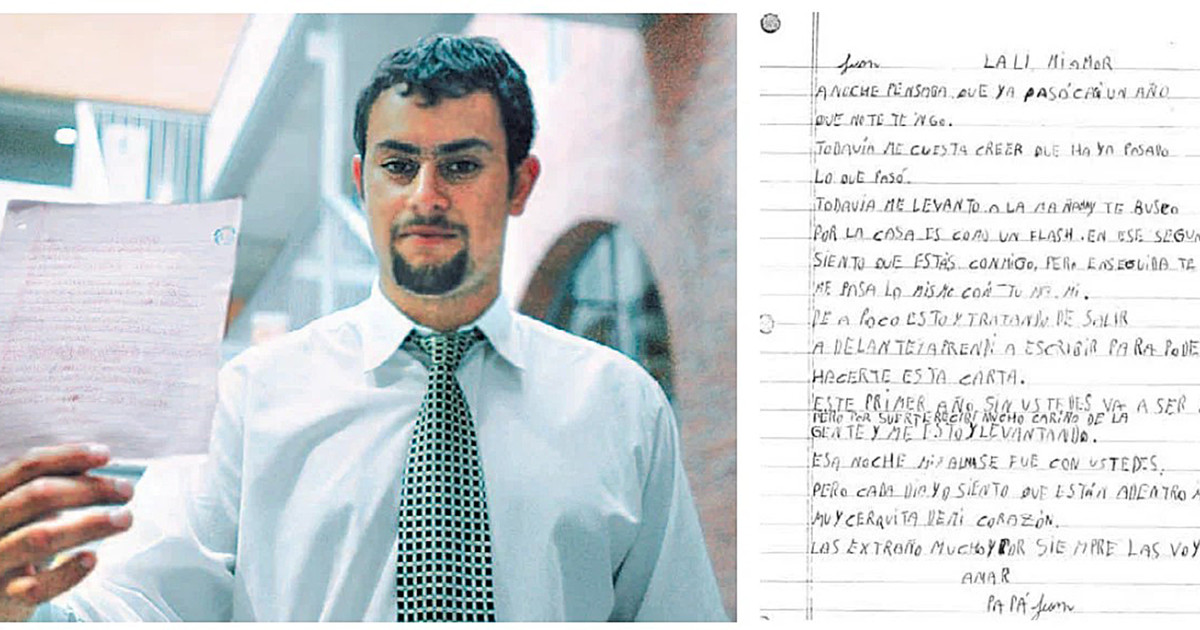 Juan LALI MI AMOR
ANOCHE PENSABA QUE YA PASÓ CASI UN AÑO
QUE NO TE TENGO.
TODAVÍA ME CUESTA CREER QUE HAYA PASADO
LO QUE PASÓ.
TODAVIA ME LEVANTO A LA MAÑANA Y TE BUSCO
POR LA CASA ES COMO UN FLASH. EN ESE SEGUN
SIENTO QUE ESTÁS CONMIGO, PERO ENSEGUIDA TE
ME PASA LO MISMO CON TU MAMI.
DE A POCO ESTOY TRATANDO DE SALIR
ADELANTE Y APRENDI A ESCRIBIR PARA PODE
HACERTE ESTA CARTA.
ESTE PRIMER AÑO SIN USTEDES VA A SER
PERO POR SUERTE RECIBI MUCHO CARIÑO DE LA
GENTE Y ME ESTOY LEVANTANDO.
ESA NOCHE MI ALMA SE FUE CON USTEDES,
PERO CADA DIA YO SIENTO QUE ESTÁN ADENTRO
MUY CERQUITA DE MI CORAZÓN.
LAS EXTRAÑO MUCHO Y POR SIEMPRE LAS VOY
AMAR
PAPÁ Juan